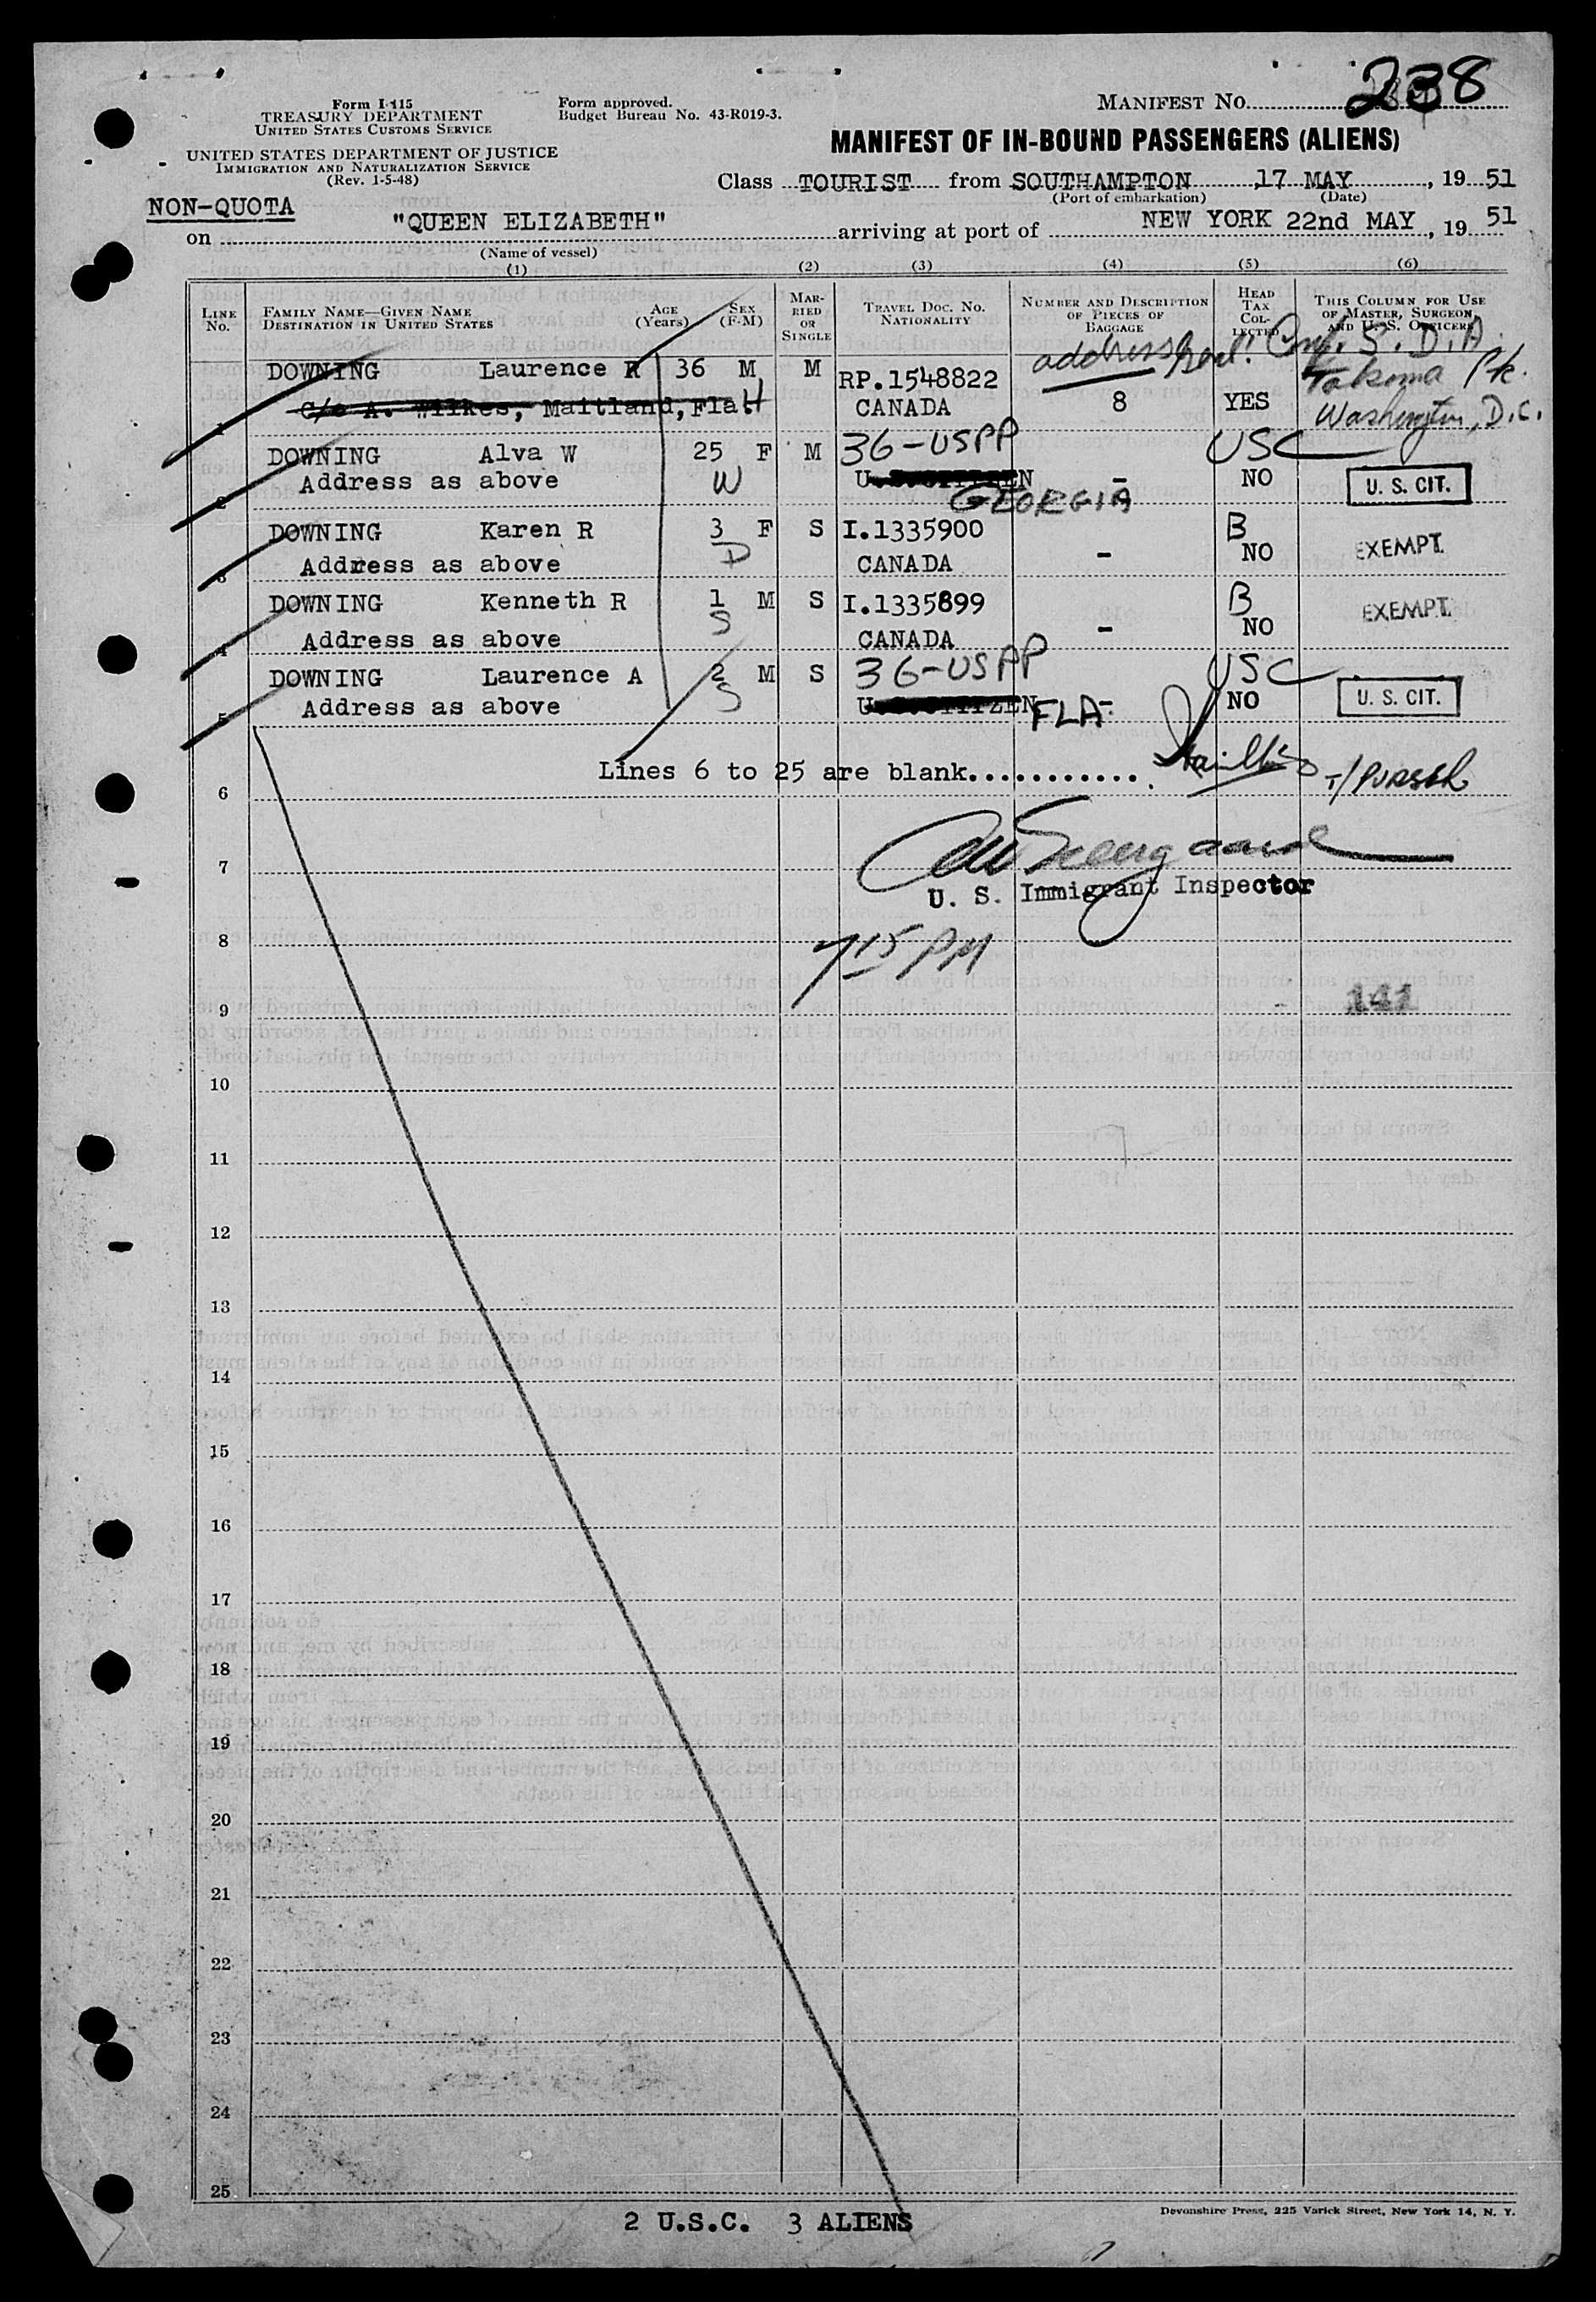 MANIFEST NO. 238
Form I-115
TREASURY DEPARTMENT
UNITED STATES CUSTOMS SERVICE
Form approved.
Budget Bureau No. 43-R019-3.
UNITED STATES DEPARTMENT OF JUSTICE
IMMIGRATION AND NATURALIZATION SERVICE
(Rev. 1-5-48)
MANIFEST OF IN-BOUND PASSENGERS (ALIENS)
Class TOURIST from SOUTHAMPTON 17 MAY, 1951
(Port of embarkation) (Date)
NON-QUOTA
on "QUEEN ELIZABETH" arriving at port of NEW YORK 22nd MAY, 19 51
(Name of vessel)
(1) (2) (3) (4) (5) (6)
LINE NO. FAMILY NAME—GIVEN NAME DESTINATION IN UNITED STATES AGE (Years) SEX (F-M) MARRIED OR SINGLE TRAVEL DOC. NO. NATIONALITY NUMBER AND DESCRIPTION OF PIECES OF BAGGAGE HEAD TAX COLLECTED THIS COLUMN FOR USE OF MASTER, SURGEON, AND U. S. OFFICERS
address Gen. Conf. S. D. A.
DOWNING Laurence R 36 M M RP.1548822 Takoma Pk.
1 C/o A. Wilkes, Maitland, Fla H CANADA 8 YES Washington, D.C.
DOWNING Alva W 25 F M 36-USPP USC
2 Address as above W U.S.CITIZEN - NO U. S. CIT.
GEORGIA
DOWNING Karen R 3 F S I.1335900 B
3 Address as above D CANADA - NO EXEMPT
DOWNING Kenneth R 1 M S I.1335899 B
4 Address as above S CANADA - NO EXEMPT
DOWNING Laurence A 2 M S 36-USPP USC
5 Address as above S U.S.CITIZEN FLA - NO U. S. CIT.
Lines 6 to 25 are blank............
T/PURSER
6
7
U. S. Immigrant Inspector
8
7 15 PM
9
141
10
11
12
13
14
15
16
17
18
19
20
21
22
23
24
25
2 U.S.C. 3 ALIENS
Devonshire Press, 225 Varick Street, New York 14, N. Y.